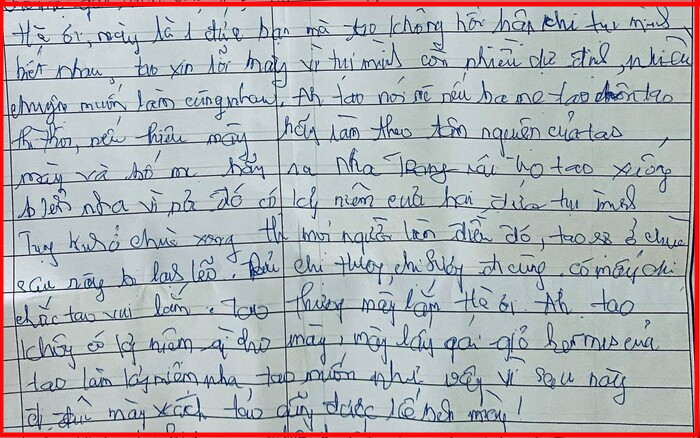 Hà ơi, mày là 1 đứa bạn mà tao không hối hận khi tụi mình
biết nhau, tao xin lỗi mày vì tụi mình còn nhiều dự định, nhiều
chuyện muốn làm cùng nhau. Ah tao nói mẹ nếu ba mẹ tao chôn tao
thì thôi, nếu thiêu mày hãy làm theo tâm nguyện của tao,
mày và bố mẹ hãy ra nha Trang rải tro tao xuống
biển nha vì nơi đó có kỷ niệm của hai đứa tụi mình
chùa xong thì mọi người lên đó, tao sẽ ở chùa
sau này bị lạc lõng. chị thùy, chị đi cùng, có mấy chị
chắc tao vui lắm. tao thương mày lắm Hà ơi. Ah tao
không có kỷ niệm gì cho mày, mày lấy cái giỏ hermes của
tao làm kỷ niệm nha tao muốn như vậy vì sau này
đi đâu mày xách tao cũng được kế bên mày!